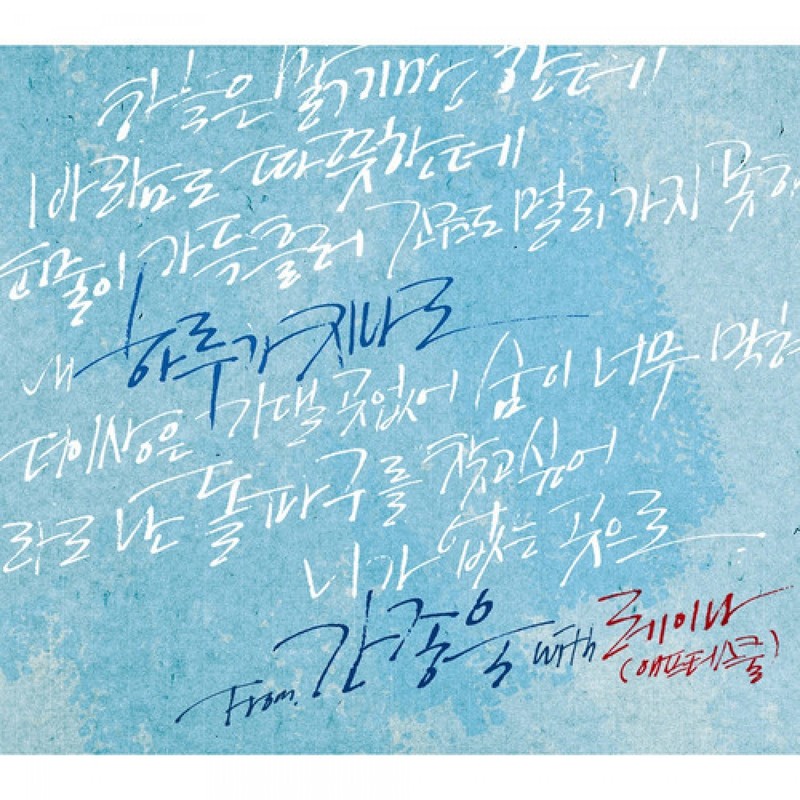 하늘은 맑기만 한데
바람도 따뜻한데
눈물이 가득 흘러 걸음도 멀리 가지 못해
내 하루가 지나도
더이상은 기댈 곳 없어 숨이 너무 막혀
라도 난 돌파구를 찾고 싶어
니가 없는 곳으로
From. 간종욱 with 레이나
(애프터스쿨)